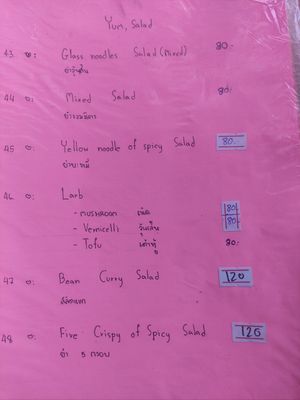 Yum, Salad
43 Glass noodles Salad (Mixed) 80.-
ยำวุ้นเส้น
44 Mixed Salad 80.-
ยำรวมมิตร
45 Yellow noodle of spicy Salad 80.-
ยำบะหมี่
46 Larb
- MUSHROOM เห็ด 80
- Vermicelli วุ้นเส้น 80
- Tofu เต้าหู้ 80.-
47 Bean Curry Salad 120
48 Five Crispy of Spicy Salad 120
ยำ 5 กรอบ